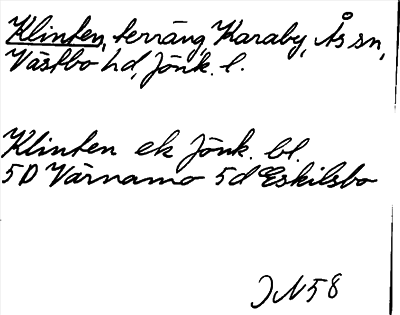 Klinten, terräng, Karaby, Ås sn,
Västbo hd, Jönk. l.
Klinten ek Jönk. bl.
5D Värnamo 5d Eskilsbo
JN58